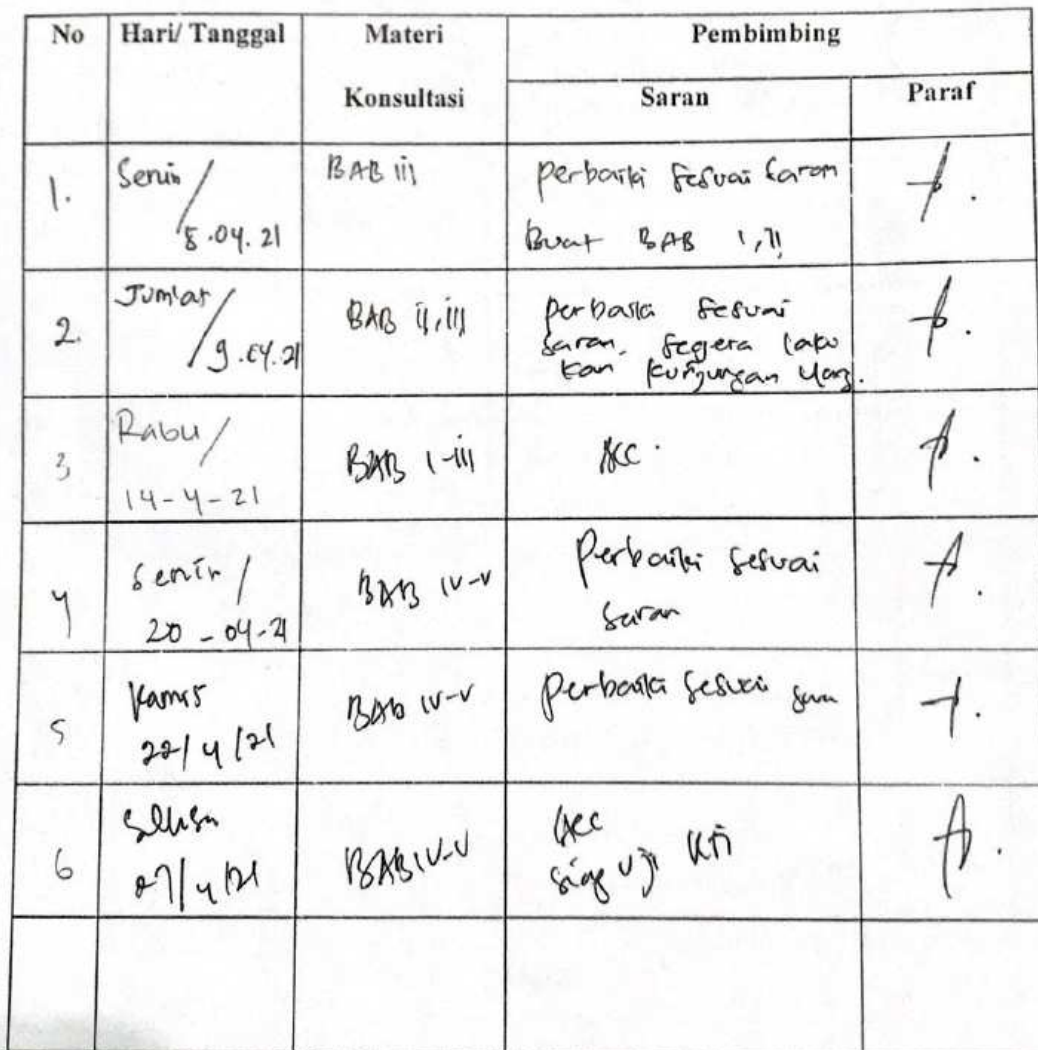 No Hari/ Tanggal Materi Konsultasi Pembimbing
Saran Paraf
1. Senin / 5.04.21 BAB III perbaiki sesuai saran
Buat BAB I, II
2. Jum'at / 9.04.21 BAB II, III perbaiki sesuai
saran, segera laku
kan kunjungan
3 Rabu / 14-4-21 BAB I-III Acc.
4 Senin / 20-04-21 BAB IV-V Perbaiki sesuai
saran
5 Kamis 22/4/21 BAB IV-V Perbaiki sesuai saran
6 Selasa 27/4/21 BAB IV-V Acc
siap uji KTI